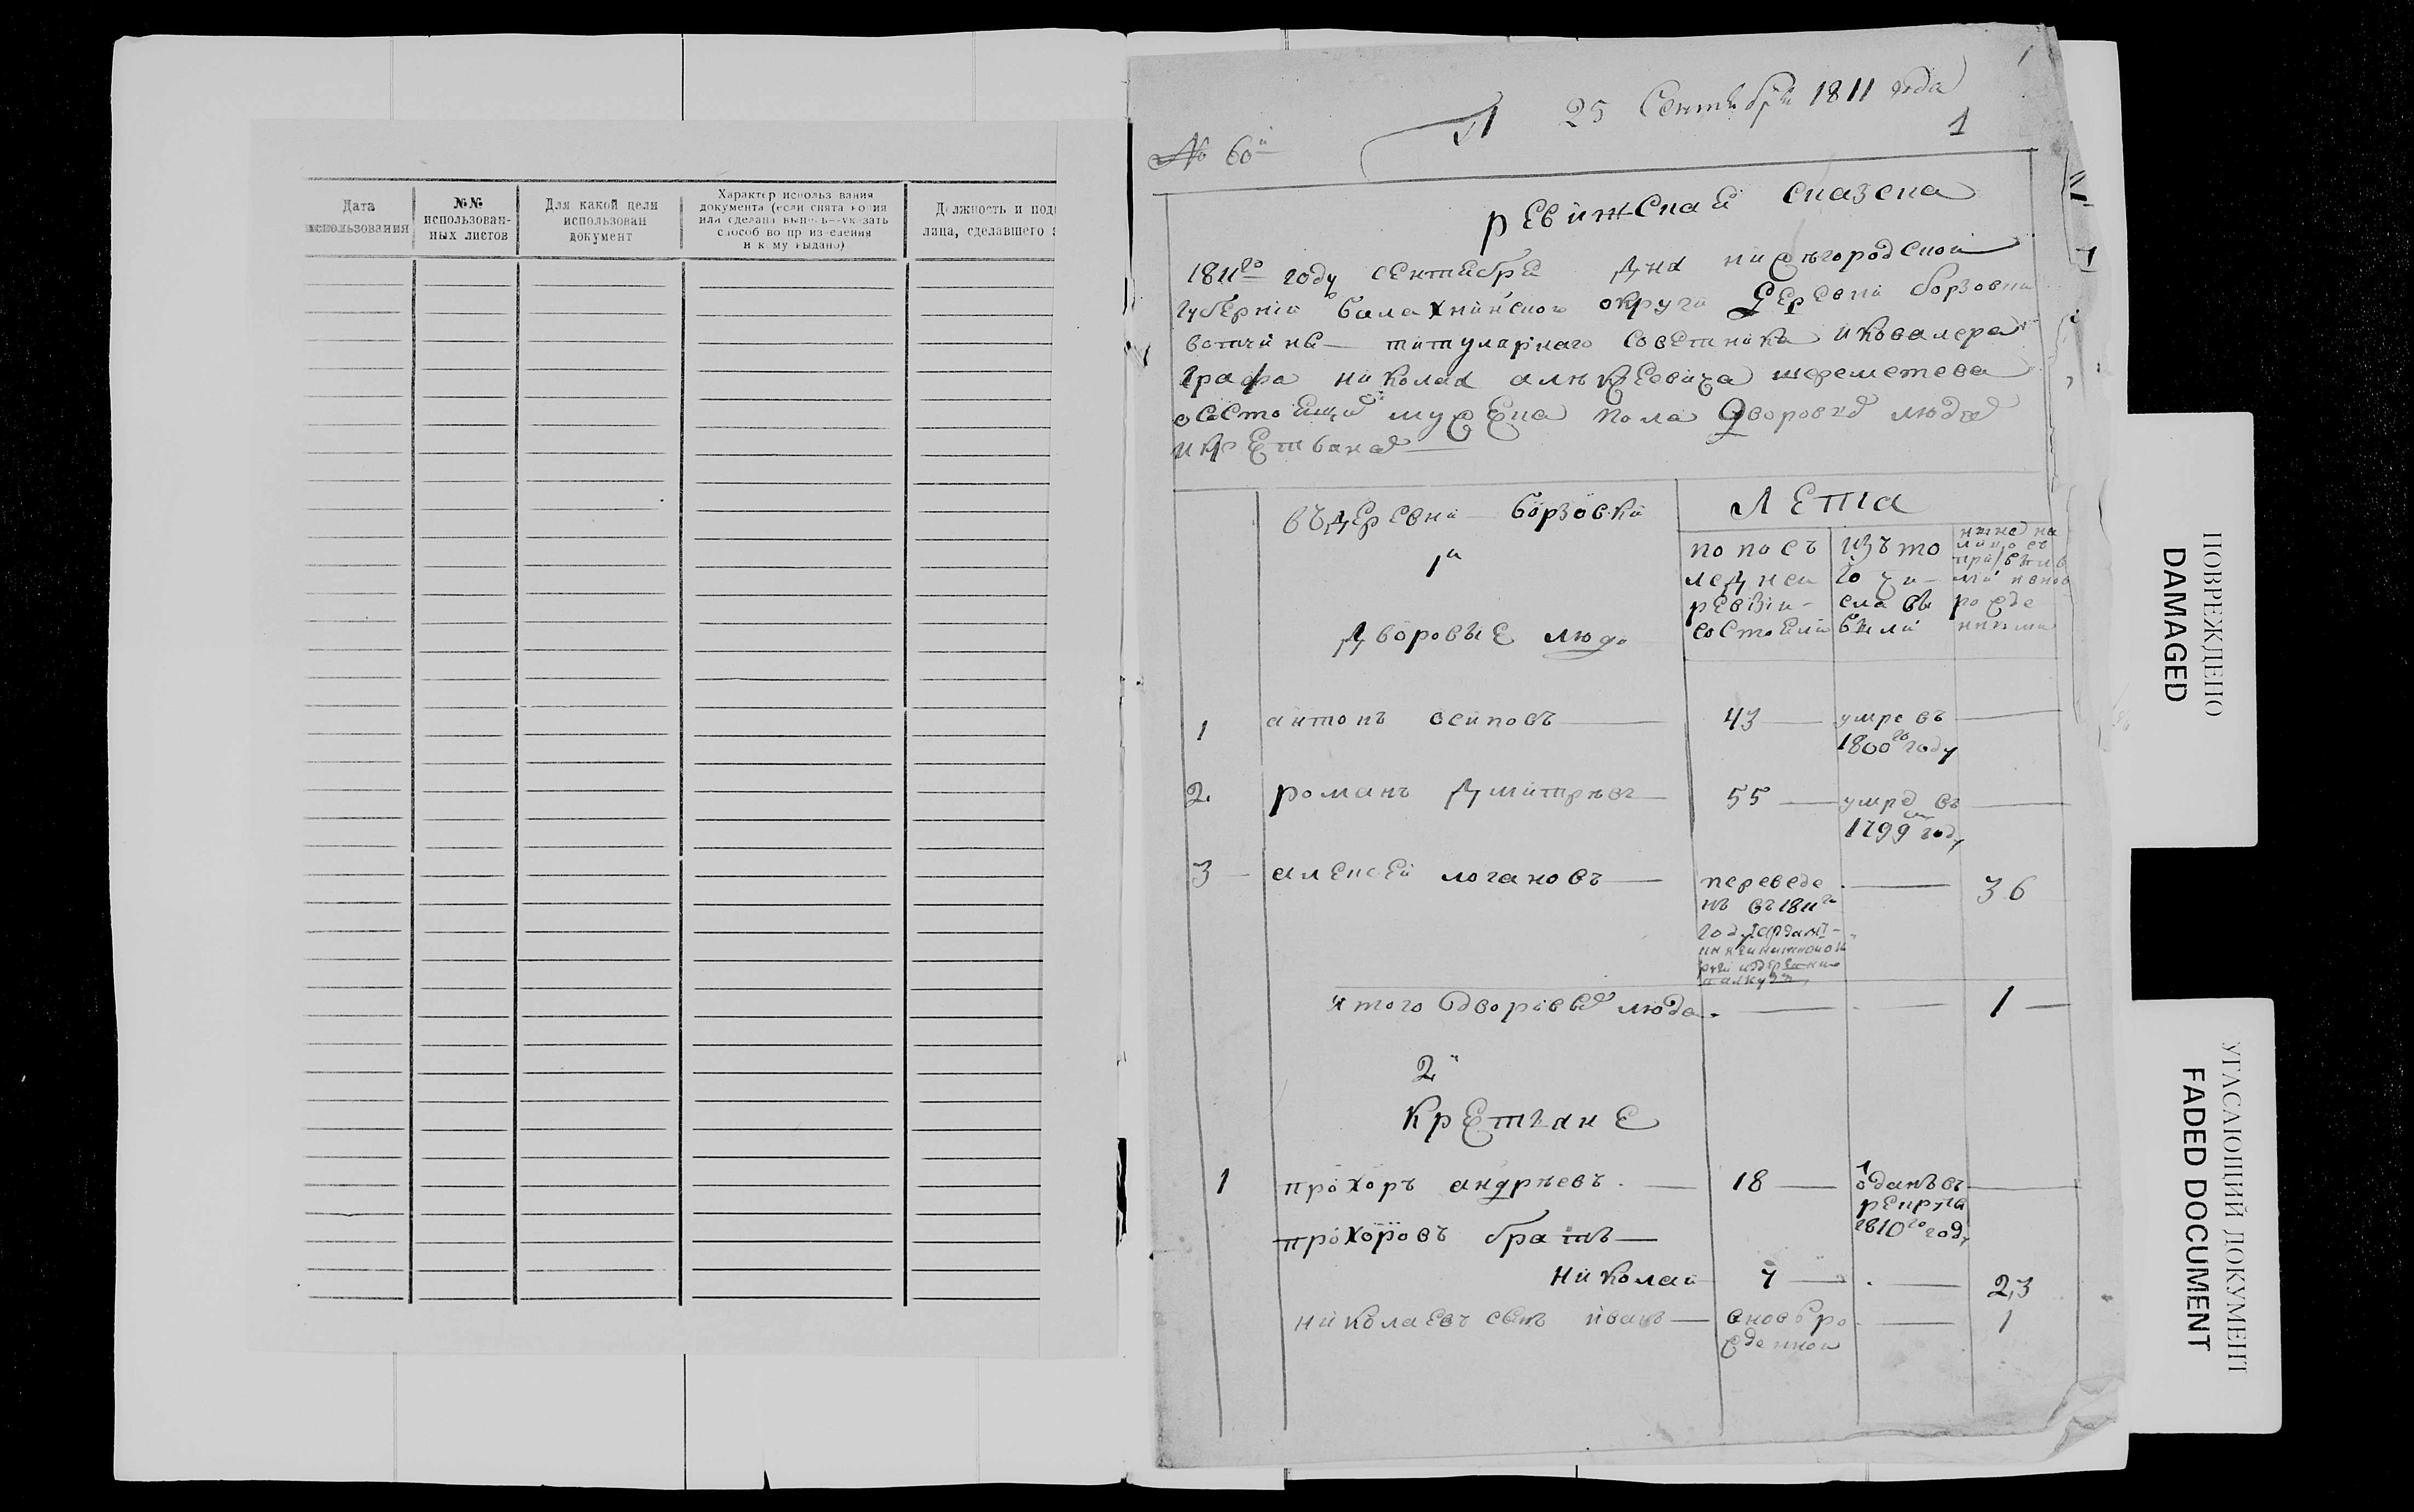 Дата использования
№№ использован-
ных листов
Для какой цели
использован
документ
Характер использ вания
документа (если снята копия
или сделана выпись—указать
способ во пр из едения
и к му выдано)
Должность и под
лица, сделавшего
25 Сентября 1811 года
№ 60й
1
ревижская сказска
1811го году сентебре дня нижегородской
губернии балахнинского округи деревни борзовки
вотчины титулярнаго советника и ковалера
графа николая алексеевича шереметева
состоящие мужеска пола дворовых людей
и крестьянах
въ деревни борзовки
1я
дворовые люди
лета
по пос
ледней
ревизии
состояли
изъ то
го чи
сла вы
были
ныне на
1
антонъ осиповъ
43
умре въ
1800го году
2
романъ дмитревъ
55
умре въ
1799 году
3
алексей логановъ
переведе
нъ въ 1811го
году
36
итого дворовых люде
1
2я
крестьяне
1
прохоръ андреевъ
18
оданъ въ
рекруты
1810го году
прохоровъ братъ
николай
7
23
николаевъ сынъ иванъ
вновь ро
жденной
1
ПОВРЕЖДЕНО
DAMAGED
УГАСАЮЩИЙ ДОКУМЕНТ
FADED DOCUMENT